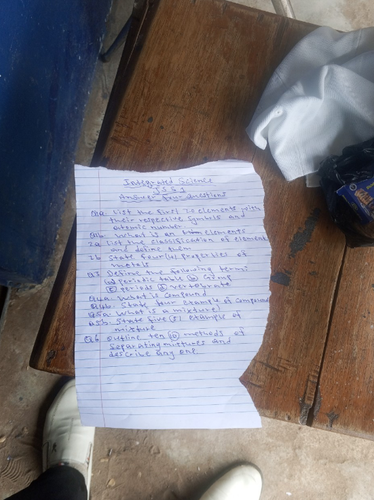 Integrated Science
JSS 1
Answer four questions
Q1a. List the first 20 elements with
their respective symbols and
atomic number
Q1b. What is an elements
2a List the classification of element
and define them
2b State four(4) properties of
metals
Q3 Define the following terms
(a) periodic table (b) Group
(c) periods (d) vertebrate
Q4a. What is compound
Q4b. State four example of compound
Q5a. What is a mixture
Q5b. State five (5) example of
mixture
Q6 Outline ten (10) methods of
Separating mixtures and
describe any one.